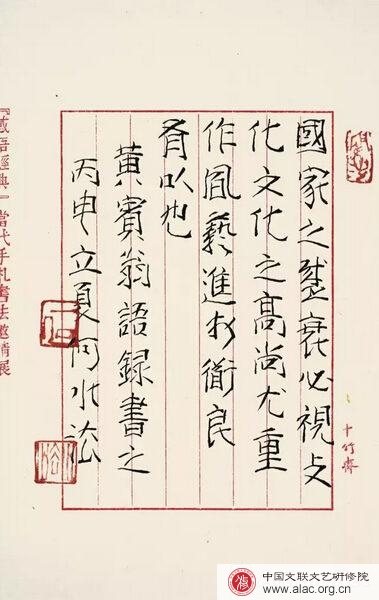 國家之盛衰必視文
化文化之高尚尤重
作風藝進於衜良
有以也
黃賓翁語錄書之
丙申立夏何水法
十竹齋
『感悟經典』當代手札書法邀請展
中国文联文艺研修院
www.alac.org.cn